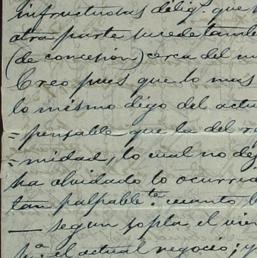 infructuosas dilig.ˢ que
otra parte puede tambien
(de concesion) cerca del
Creo pues que lo mas
lo mismo digo del actu
=pensable que la del
=midad, lo cual no de
ha olvidado lo ocurrid
tan palpable.ᵗᵉ cuanto
— segun sopla el vien
el actual negocio; y